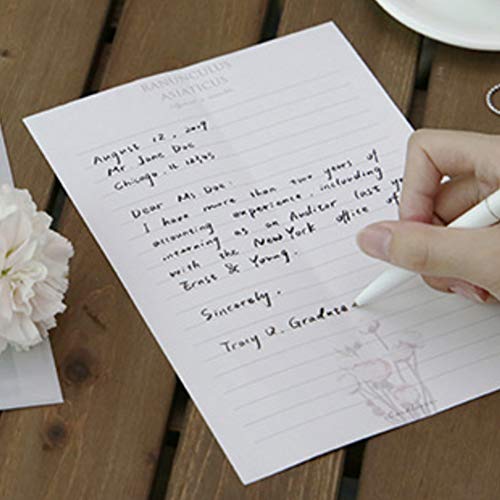 RANUNCULUS
ASIATICUS
August 12, 2019
Mr. Jane Doe
Chicago. IL 12345
Dear Ms Doe:
I have more than two years of
accounting experience including
interning as an Auditor last
with the New York office of
Ernst & Young.
Sincerely.
Tracy Q. Graduate